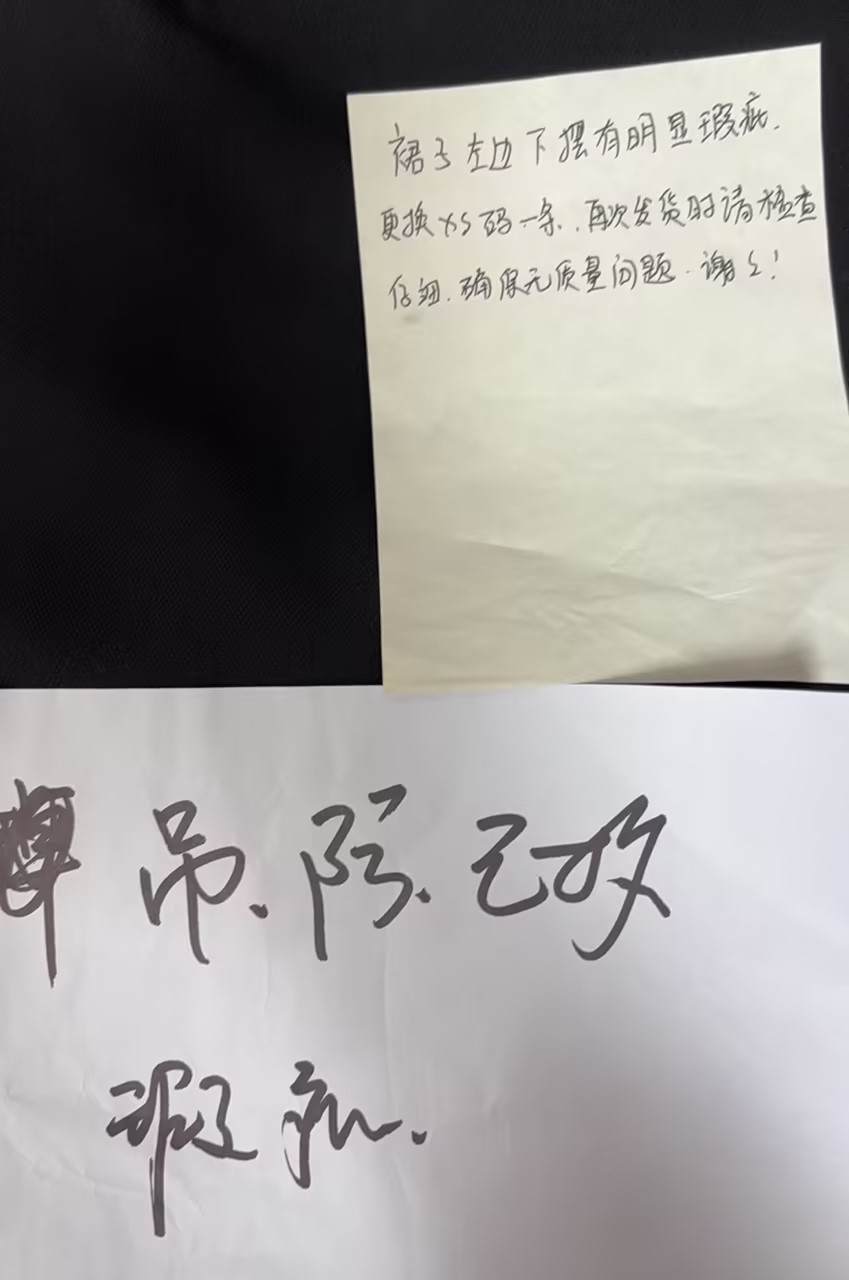 裙子左边下摆有明显瑕疵.
更换XS码一条.再次发货时请检查
仔细.确保无质量问题.谢谢!
吊.际.已放
瑕疵.